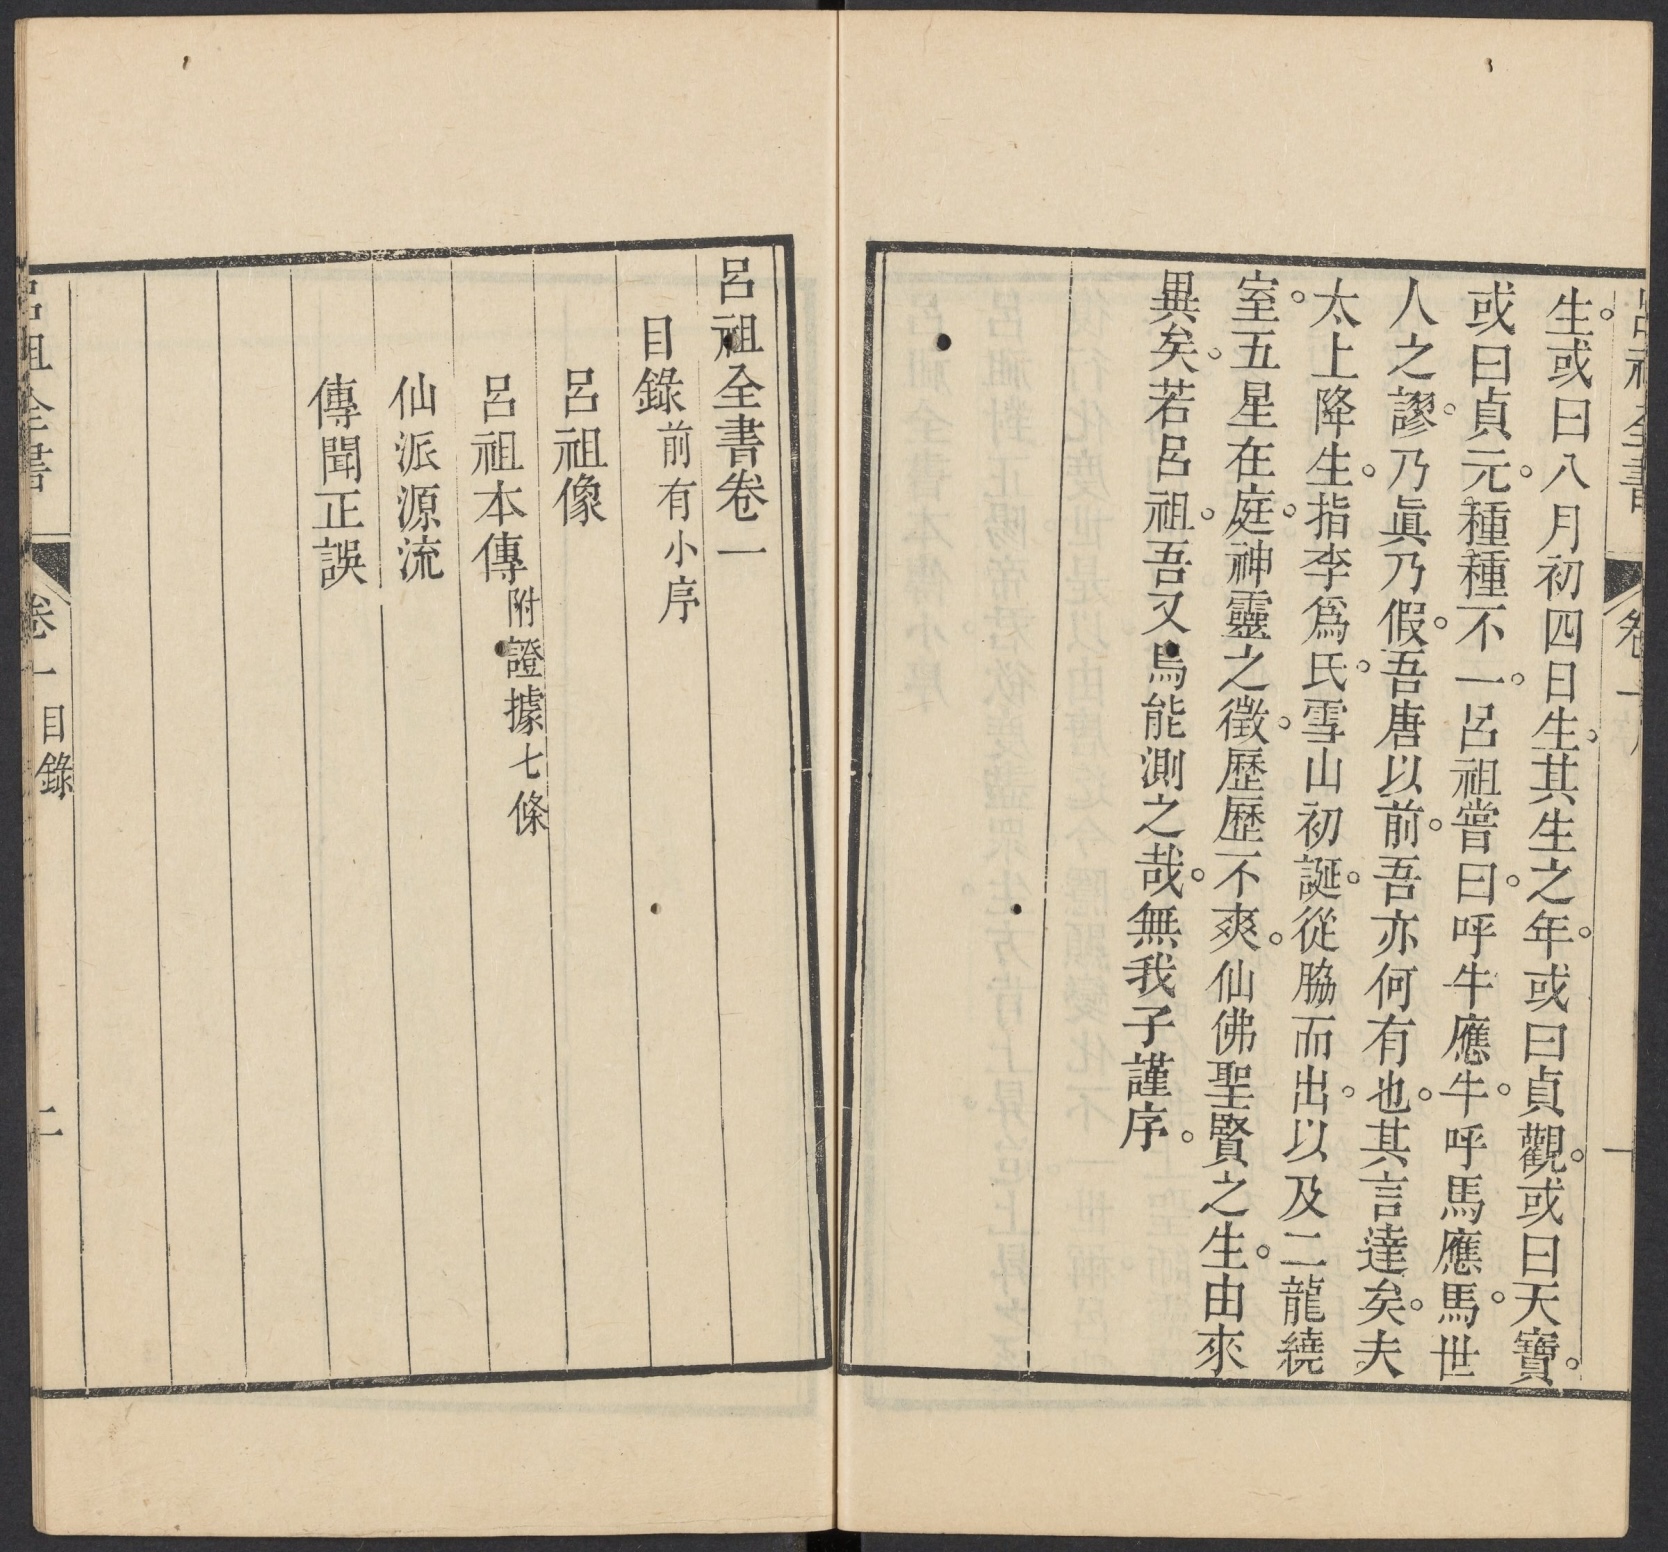 生。或曰八月初四日生。其生之年。或曰貞觀。或曰天寶。
或曰貞元。種種不一。呂祖嘗曰。呼牛應牛。呼馬應馬。世
人之謬。乃眞乃假。吾唐以前。吾亦何有也。其言達矣。夫
太上降生。指李爲氏。雪山初誕。從脇而出。以及二龍繞
室。五星在庭。神靈之徵。歷歷不爽。仙佛聖賢之生。由來
異矣。若呂祖。吾又烏能測之哉。無我子謹序。
呂祖全書卷一
目錄前有小序
呂祖像
呂祖本傳附證據七條
仙派源流
傳聞正誤
呂祖全書 卷一目錄 二